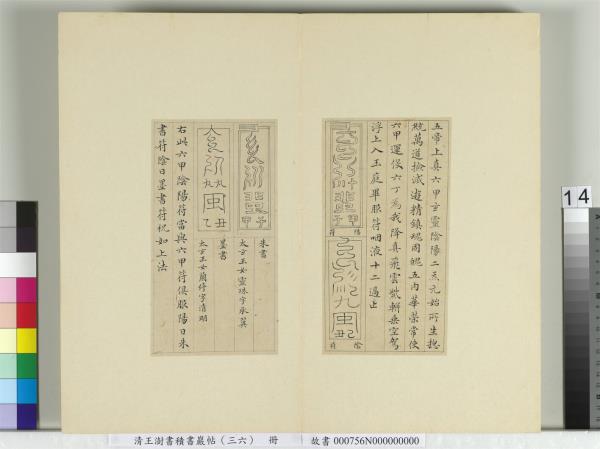 五帝上真六甲玄靈陰陽二炁元始所生總
統萬道撿滅遊精鎮魂固魄五內華榮常使
六甲運役六丁為我降真飛雲紫軿垂空駕
浮上入玉庭畢服符咽液十二過止
陽符
甲子
陰符
乙丑
甲子
朱書
太玄玉女靈珠字承翼
乙丑
墨書
太玄玉女蘭修字清明
右此六甲陰陽符當與六甲符俱服陽日朱
書符陰日墨書符祝如上法
14
清王澍書積書巖帖（三六） 冊 故書 000756N000000000